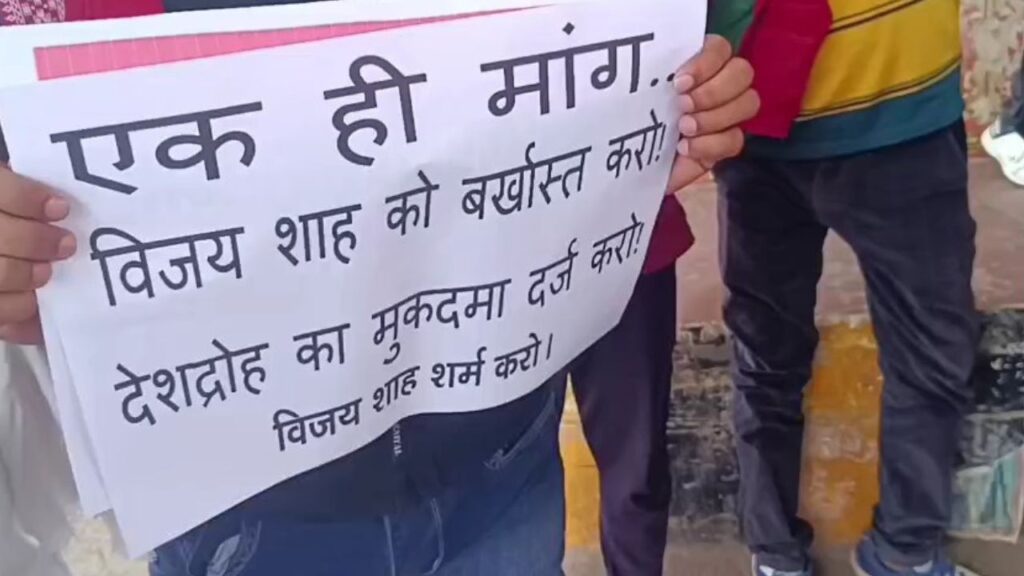 एक ही मांग..
विजय शाह को बर्खास्त करो!
देशद्रोह का मुकदमा दर्ज करो!
विजय शाह शर्म करो।